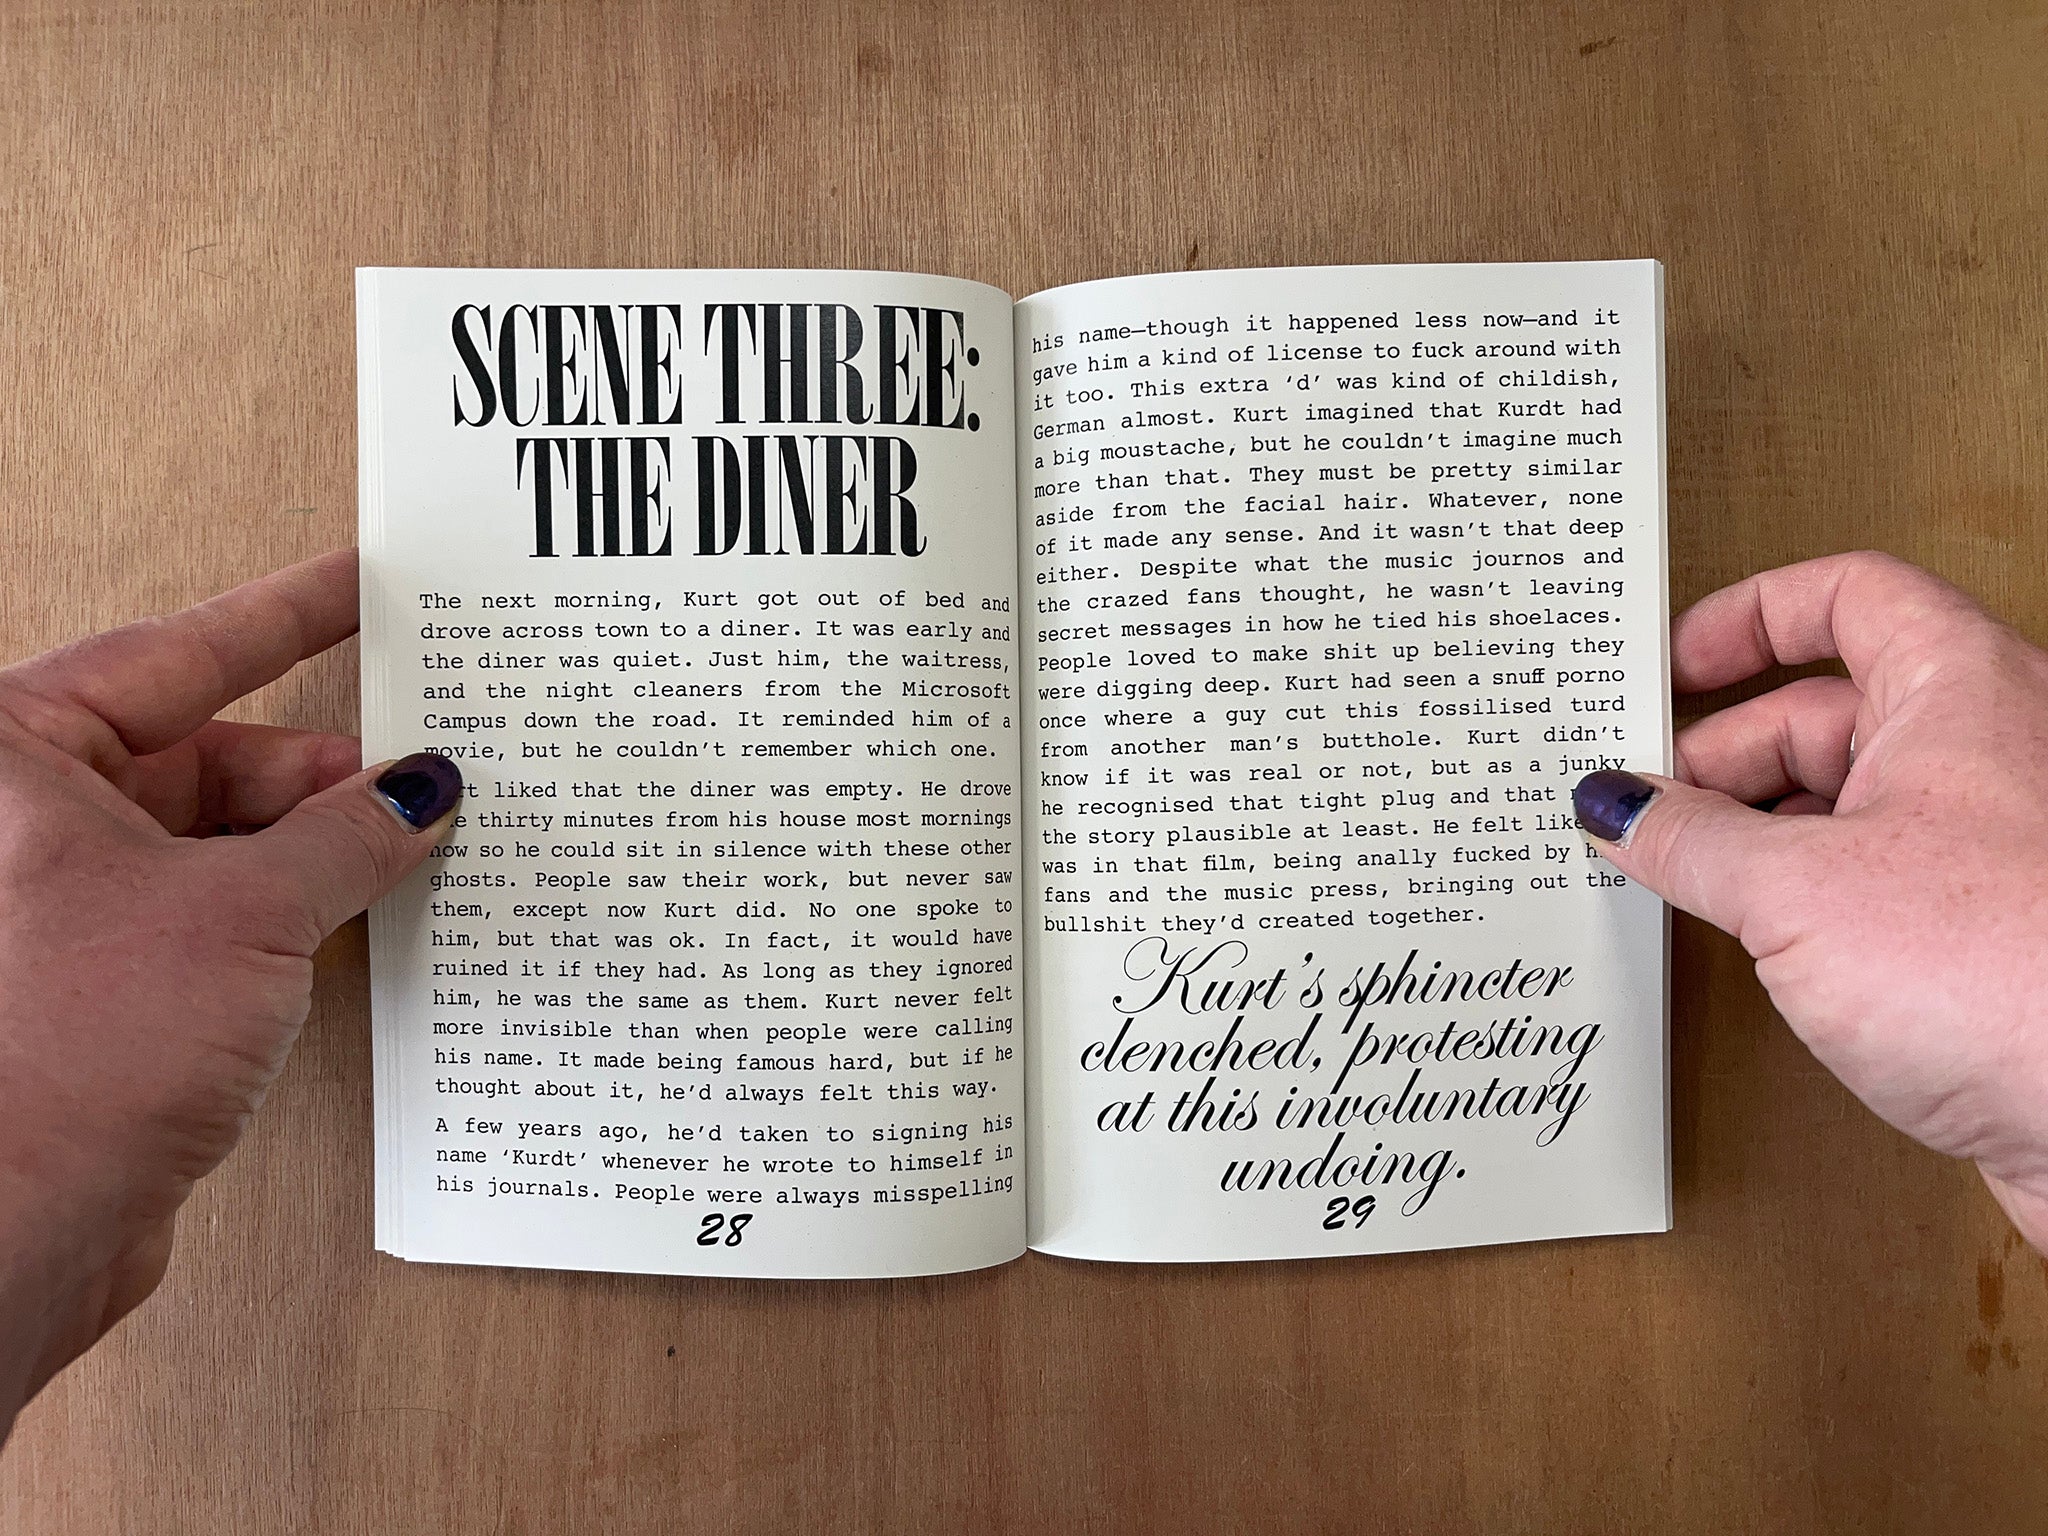 SCENE THREE:
THE DINER
The next morning, Kurt got out of bed and
drove across town to a diner. It was early and
the diner was quiet. Just him, the waitress,
and the night cleaners from the Microsoft
Campus down the road. It reminded him of a
movie, but he couldn't remember which one.
liked that the diner was empty. He drove
thirty minutes from his house most mornings
now so he could sit in silence with these other
ghosts. People saw their work, but never saw
them, except now Kurt did. No one spoke to
him, but that was ok. In fact, it would have
ruined it if they had. As long as they ignored
him, he was the same as them. Kurt never felt
more invisible than when people were calling
his name. It made being famous hard, but if he
thought about it, he'd always felt this way.
A few years ago, he'd taken to signing his
name ‘Kurdt’ whenever he wrote to himself in
his journals. People were always misspelling
28
his name—though it happened less now—and it
gave him a kind of license to fuck around with
it too. This extra ‘d’ was kind of childish,
German almost. Kurt imagined that Kurdt had
a big moustache, but he couldn't imagine much
more than that. They must be pretty similar
aside from the facial hair. Whatever, none
of it made any sense. And it wasn't that deep
either. Despite what the music journos and
the crazed fans thought, he wasn't leaving
secret messages in how he tied his shoelaces.
People loved to make shit up believing they
were digging deep. Kurt had seen a snuff porno
once where a guy cut this fossilised turd
from another man's butthole. Kurt didn't
know if it was real or not, but as a junky
he recognised that tight plug and that
the story plausible at least. He felt like
was in that film, being anally fucked by
fans and the music press, bringing out the
bullshit they'd created together.
Kurt's sphincter
clenched, protesting
at this involuntary
undoing.
29